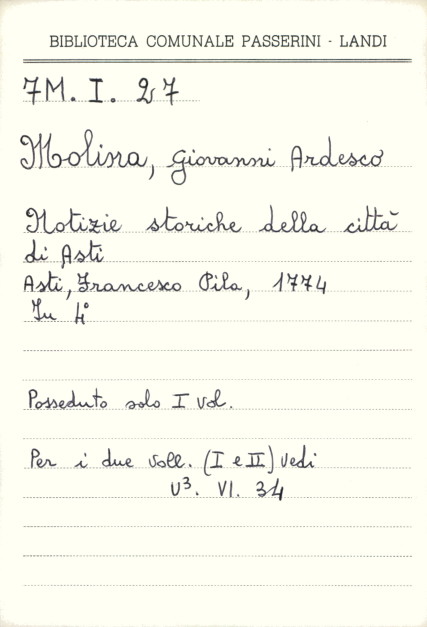 BIBLIOTECA COMUNALE PASSERINI - LANDI
7M. I. 27
Molina, Giovanni Ardesco
Notizie storiche della città
di Asti
Asti, Francesco Pila, 1774
In 4°
Posseduto solo I vol.
Per i due voll. (I e II) vedi
V³. VI. 34